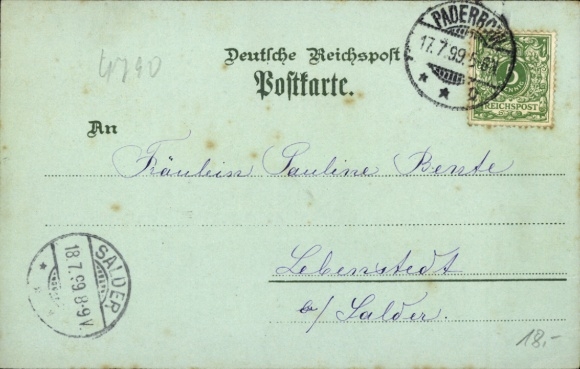 4790
Deutsche Reichspost
Postkarte.
PADERBORN
17.7.99.5-6N.
5
REICHSPOST
An
Fräulein Pauline Bente
Lebenstedt
b/ Salder.
SALDER
18.7.99.8-9V.
18.-